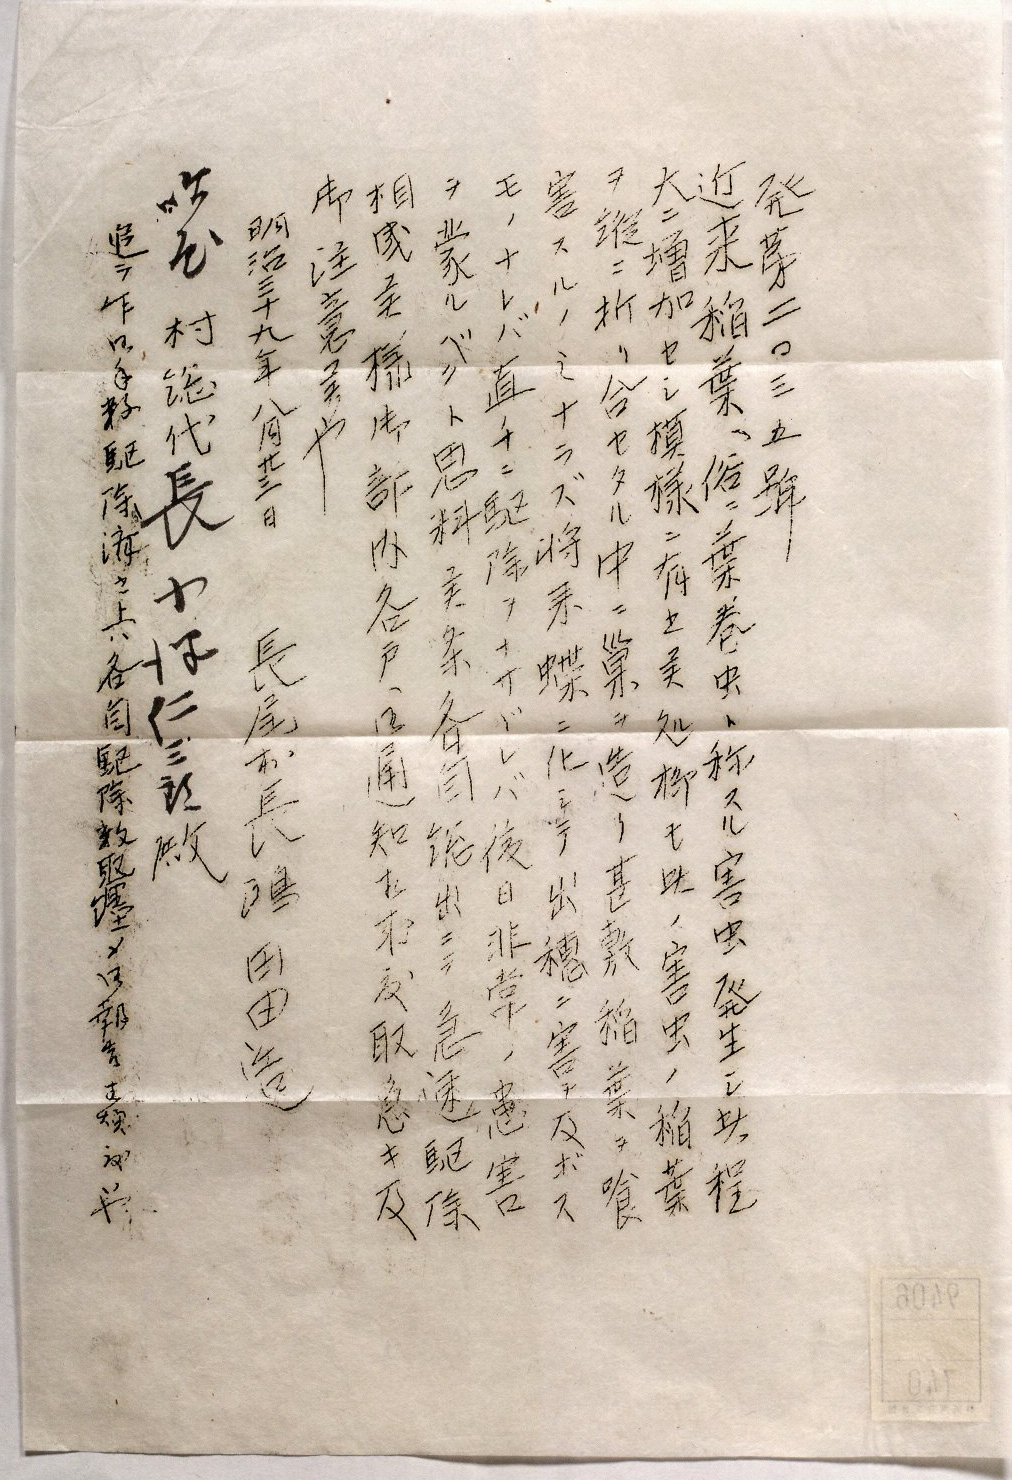 発第二〇三五號
近来稲葉ヘ俗ニ葉巻虫ト称スル害虫発生シ此程
大ニ増加セシ模様ニ有之候処抑モ此ノ害虫ノ稲葉
ヲ縦ニ折リ合セタル中ニ巣ヲ造リ甚敷稲葉ヲ喰
害スルノミナラズ将来蝶ニ化シテ出穂ニ害ヲ及ボス
モノナレバ直チニ駆除ヲナサヾレバ後日非常ノ患害
ヲ蒙ルベクト思料候条各自総出ニテ急速駆除
相成候様御部内各戸ヘ御通知相成度取急キ及
御注意候也
明治三十九年八月廿三日
長尾村長 田造
村総代 長 仁三郎殿
追テ乍御手数駆除済之上ハ各自駆除数取纏メ御報告